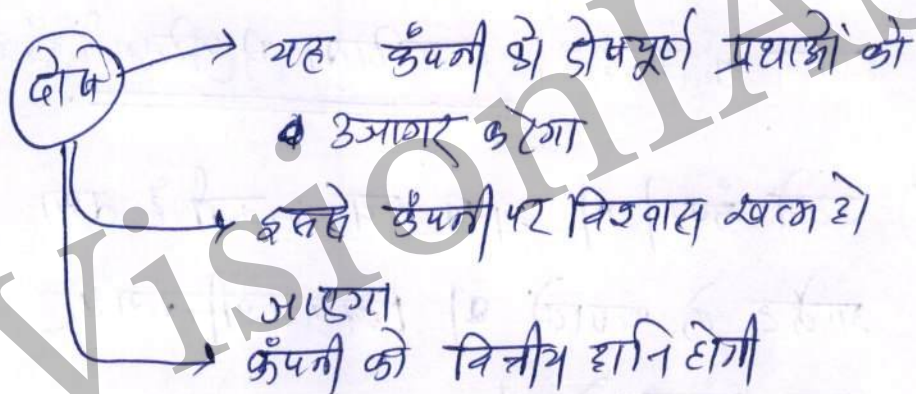 दोष
यह कंपनी की दोषपूर्ण प्रथाओं को
उजागर करेगा
इससे कंपनी पर विश्वास खत्म हो
जाएगा
कंपनी को वित्तीय हानि होगी
VisionIAS